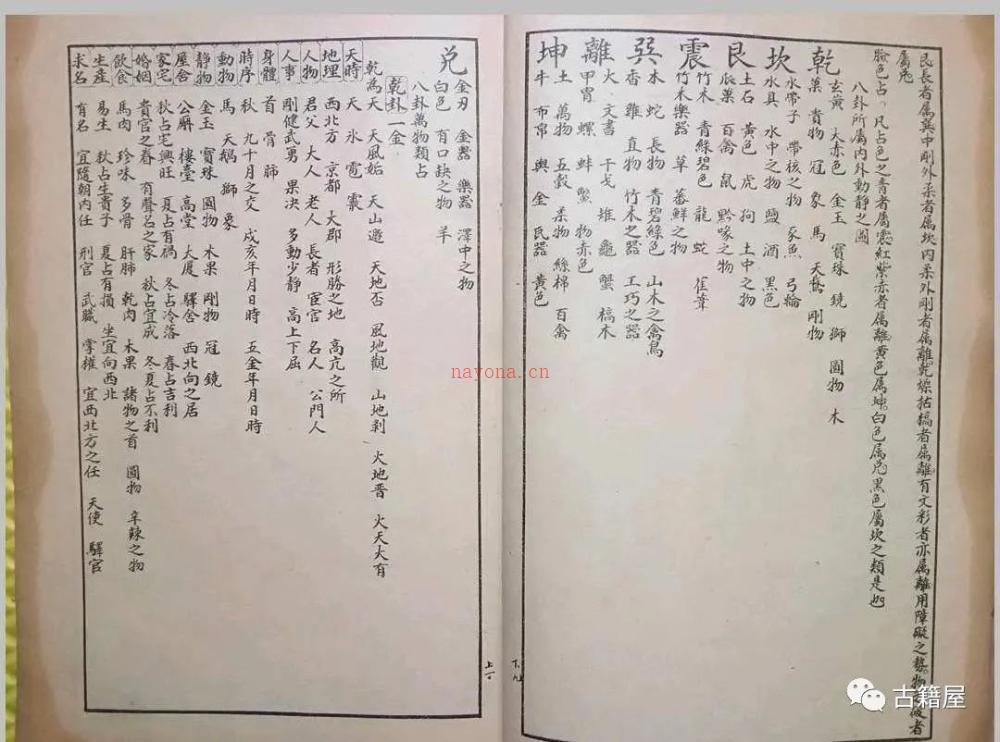 艮長者属巽中剛外柔者属坎内柔外剛者属離乾燥枯槁者属離有文彩者亦属離用障礙之勢物
属兌
臉色占凡占色之青者属震紅紫赤者属離黄色属坤白色属兌黒色屬坎之類是也
八卦所属内外動静之圖
乾
玄黄 大赤色 金玉 寶珠 鏡 獅 圓物 木
菓 貴物 冠 象 馬 天鵞 剛物
坎
水帶子 帶核之物 豕魚 弓輪
水具 水中之物 鹽 酒 黒色
艮
土石 黄色 虎 狗 土中之物
瓜菓 百禽 鼠 黔喙之物
震
竹木 青綠碧色 龍 蛇 萑葦
竹木樂器 草 蕃鮮之物
巽
木 蛇 長物 青碧綠色 山木之禽鳥
香 雞 直物 竹木之器 工巧之器
離
火 文書 干戈 雉 龜 蟹 槁木
甲胄 螺 蚌 鱉 物赤色
坤
土 萬物 五穀 柔物 絲棉 百禽
牛 布帛 輿 金 瓦器 黄色
下九
兌
金刃 金器 樂器 澤中之物
白色 有口缺之物 羊
八卦萬物類占
乾卦一金
乾為天 天風姤 天山遯 天地否 風地觀 山地剥 火地晋 火天大有
天時 天 氷 雹 霰
地理 西北方 京都 大郡 形勝之地 高亢之所
人物 君父 大人 老人 長者 宦官 名人 公門人
人事 剛健武勇 果决 多動少静 高上下屈
身體 首 骨 肺
時序 秋 九十月之交 戌亥年月日時 五金年月日時
動物 馬 天鵝 獅 象
静物 金玉 寶珠 圓物 木果 剛物 冠 鏡
屋舎 公廨 樓臺 高堂 大厦 驛舎 西北向之居
家宅 秋占宅興旺 夏占有禍 冬占冷落 春占吉利
婚姻 貴官之眷 有聲名之家 秋占宜成 冬夏占不利
飲食 馬肉 珍味 多骨 肝肺 乾肉 木果 諸物之首 圓物 辛辣之物
生産 易生 秋占生貴子 夏占有損 坐宜向西北
求名 有名 宜隨朝内任 刑官 武職 掌權 宜西北方之任 天使 驛官
nayona.cn
古籍屋